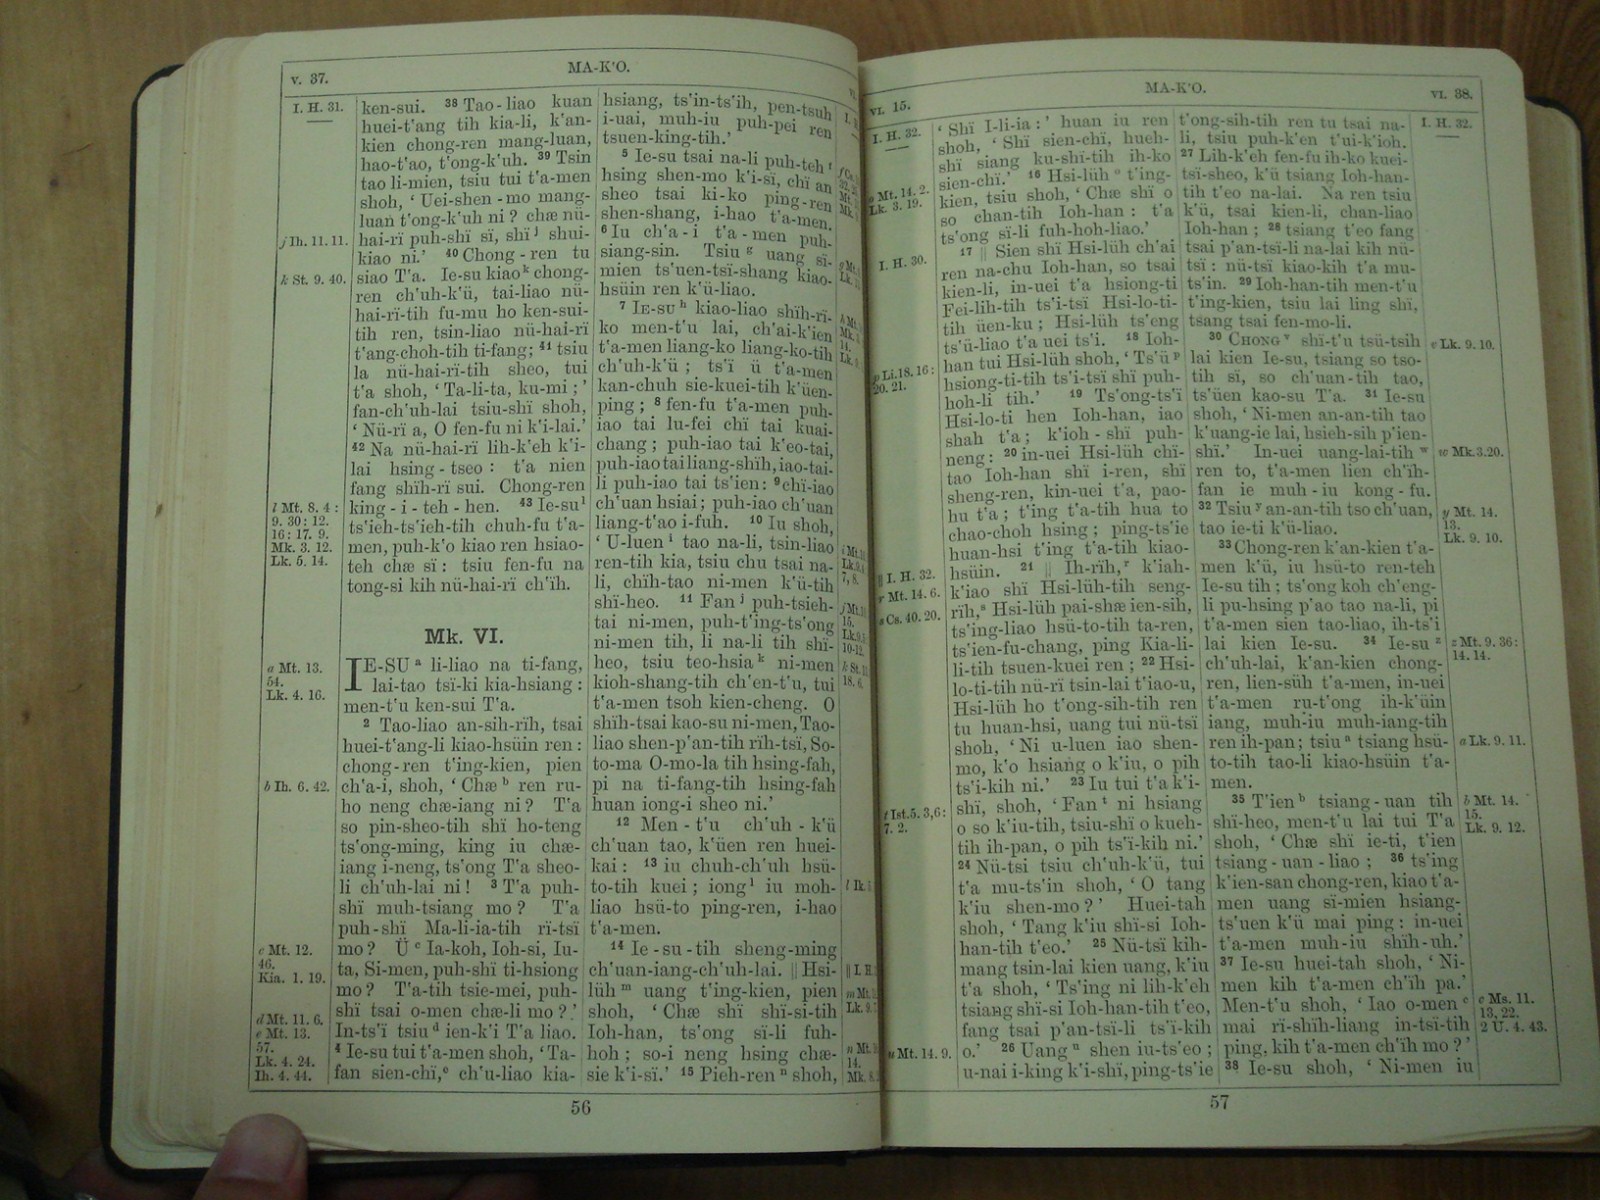 v. 37.
MA-K'O.
I. H. 31.
ken-sui. 38 Tao-liao kuan
huei-t'ang tih kia-li, k'an-
kien chong-ren mang-luan,
hao-t'ao, t'ong-k'uh. 39 Tsin
tao li-mien, tsiu tui t'a-men
shoh, ‘ Uei-shen-mo mang-
luan t'ong-k'uh ni? chæ nü-
hai-rï puh-shï sï, shï j shui-
kiao ni.’ 40 Chong-ren tu
siao T'a. Ie-su kiao k chong-
ren ch'uh-k'ü, tai-liao nü-
hai-rï-tih fu-mu ho ken-sui-
tih ren, tsin-liao nü-hai-rï
t'ang-choh-tih ti-fang; 41 tsiu
la nü-hai-rï-tih sheo, tui
t'a shoh, ‘ Ta-li-ta, ku-mi;’
fan-ch'uh-lai tsiu-shï shoh,
‘ Nü-rï a, O fen-fu ni k'i-lai.’
42 Na nü-hai-rï lih-k'eh k'i-
lai hsing-tseo: t'a nien
fang shïh-rï sui. Chong-ren
king-i-teh-hen. 43 Ie-su l
ts'ieh-ts'ieh-tih chuh-fu t'a-
men, puh-k'o kiao ren hsiao-
teh chæ sï: tsiu fen-fu na
tong-si kih nü-hai-rï ch'ïh.
Mk. VI.
IE-SU a li-liao na ti-fang,
lai-tao tsï-ki kia-hsiang:
men-t'u ken-sui T'a.
2 Tao-liao an-sih-rïh, tsai
huei-t'ang-li kiao-hsüin ren:
chong-ren t'ing-kien, pien
ch'a-i, shoh, ‘ Chæ b ren ru-
ho neng chæ-iang ni? T'a
so pin-sheo-tih shï ho-teng
ts'ong-ming, king iu chæ-
iang i-neng, ts'ong T'a sheo-
li ch'uh-lai ni! 3 T'a puh-
shï muh-tsiang mo? T'a
puh-shï Ma-li-ia-tih rï-tsï
mo? Ü c Ia-koh, Ioh-si, Iu-
ta, Si-men, puh-shï ti-hsiong
mo? T'a-tih tsie-mei, puh-
shï tsai o-men chæ-li mo?’
In-ts'ï tsiu d ien-k'i T'a liao.
4 Ie-su tui t'a-men shoh, ‘ Ta-
fan sien-chï, e ch'u-liao kia-
j Ih. 11. 11.
k St. 9. 40.
l Mt. 8. 4:
9. 30: 12.
16: 17. 9.
Mk. 3. 12.
Lk. 5. 14.
a Mt. 13.
54.
Lk. 4. 16.
b Ih. 6. 42.
c Mt. 12.
46.
Kia. 1. 19.
d Mt. 11. 6.
e Mt. 13.
57.
Lk. 4. 24.
Ih. 4. 44.
hsiang, ts'in-ts'ih, pen-tsuh
i-uai, muh-iu puh-pei ren
tsuen-king-tih.’
5 Ie-su tsai na-li puh-teh f
hsing shen-mo k'i-sï, chï an
sheo tsai ki-ko ping-ren
shen-shang, i-hao t'a-men.
6 Iu ch'a-i t'a-men puh-
siang-sin. Tsiu g uang sï-
mien ts'uen-tsï-shang kiao-
hsüin ren k'ü-liao.
7 IE-SU h kiao-liao shïh-rï-
ko men-t'u lai, ch'ai-k'ien
t'a-men liang-ko liang-ko-tih
ch'uh-k'ü; ts'ï ü t'a-men
kan-chuh sie-kuei-tih k'üen-
ping; 8 fen-fu t'a-men puh-
iao tai lu-fei chï tai kuai-
chang; puh-iao tai k'eo-tai,
puh-iao tai liang-shïh, iao-tai-
li puh-iao tai ts'ien: 9 chï-iao
ch'uan hsiai; puh-iao ch'uan
liang-t'ao i-fuh. 10 Iu shoh,
‘ U-luen i tao na-li, tsin-liao
ren-tih kia, tsiu chu tsai na-
li, chïh-tao ni-men k'ü-tih
shï-heo. 11 Fan j puh-tsieh-
tai ni-men, puh-t'ing-ts'ong
ni-men tih, li na-li tih shï-
heo, tsiu teo-hsia k ni-men
kioh-shang-tih ch'en-t'u, tui
t'a-men tsoh kien-cheng. O
shïh-tsai kao-su ni-men, Tao-
liao shen-p'an-tih rïh-tsï, So-
to-ma O-mo-la tih hsing-fah,
pi na ti-fang-tih hsing-fah
huan iong-i sheo ni.’
12 Men-t'u ch'uh-k'ü
ch'uan tao, k'üen ren huei-
kai: 13 iu chuh-ch'uh hsü-
to-tih kuei; iong l iu moh-
liao hsü-to ping-ren, i-hao
t'a-men.
14 Ie-su-tih sheng-ming
ch'uan-iang-ch'uh-lai. || Hsi-
lüh m uang t'ing-kien, pien
shoh, ‘ Chæ shï shï-si-tih
Ioh-han, ts'ong sï-li fuh-
hoh; so-i neng hsing chæ-
sie k'i-sï.’ 15 Pieh-ren n shoh,
56
VI. 15.
MA-K'O.
VI. 38.
I. H. 32.
o Mt. 14. 2.
Lk. 3. 19.
I. H. 30.
p Li. 18. 16:
20. 21.
|| I. H. 32.
r Mt. 14. 6.
s Cs. 40. 20.
t Ist. 5. 3, 6:
7. 2.
u Mt. 14. 9.
‘ Shï I-li-ia:’ huan iu ren
shoh, ‘ Shï sien-chï, hueh-
shï siang ku-shï-tih ih-ko
sien-chï.’ 16 Hsi-lüh o t'ing-
kien, tsiu shoh, ‘ Chæ shï o
so chan-tih Ioh-han: t'a
ts'ong sï-li fuh-hoh-liao.’
17 || Sien shï Hsi-lüh ch'ai
ren na-chu Ioh-han, so tsai
kien-li, in-uei t'a hsiong-ti
Fei-lih-tih ts'i-tsï Hsi-lo-ti-
tih üen-ku; Hsi-lüh ts'eng
ts'ü-liao t'a uei ts'i. 18 Ioh-
han tui Hsi-lüh shoh, ‘ Ts'ü p
hsiong-ti-tih ts'i-tsï shï puh-
hoh-li tih.’ 19 Ts'ong-ts'ï
Hsi-lo-ti hen Ioh-han, iao
shah t'a; k'ioh-shï puh-
neng: 20 in-uei Hsi-lüh chï-
tao Ioh-han shï i-ren, shï
sheng-ren, kin-uei t'a, pao-
hu t'a; t'ing t'a-tih hua to
chao-choh hsing; ping-ts'ie
huan-hsi t'ing t'a-tih kiao-
hsüin. 21 || Ih-rïh, r k'iah-
k'iao shï Hsi-lüh-tih seng-
rïh, s Hsi-lüh pai-shæ ien-sih,
ts'ing-liao hsü-to-tih ta-ren,
ts'ien-fu-chang, ping Kia-li-
li-tih tsuen-kuei ren; 22 Hsi-
lo-ti-tih nü-rï tsin-lai t'iao-u,
Hsi-lüh ho t'ong-sih-tih ren
tu huan-hsi, uang tui nü-tsï
shoh, ‘ Ni u-luen iao shen-
mo, k'o hsiang o k'iu, o pih
ts'ï-kih ni.’ 23 Iu tui t'a k'i-
shï, shoh, ‘ Fan t ni hsiang
o so k'iu-tih, tsiu-shï o kueh-
tih ih-pan, o pih ts'ï-kih ni.’
24 Nü-tsï tsiu ch'uh-k'ü, tui
t'a mu-ts'in shoh, ‘ O tang
k'iu shen-mo?’ Huei-tah
shoh, ‘ Tang k'iu shï-si Ioh-
han-tih t'eo.’ 25 Nü-tsï kih-
mang tsin-lai kien uang, k'iu
t'a shoh, ‘ Ts'ing ni lih-k'eh
tsiang shï-si Ioh-han-tih t'eo,
fang tsai p'an-tsï-li ts'ï-kih
o.’ 26 Uang u shen iu-ts'eo;
u-nai i-king k'i-shï, ping-ts'ie
t'ong-sih-tih ren tu tsai na-
li, tsiu puh-k'en t'ui-k'ioh.
27 Lih-k'eh fen-fu ih-ko kuei-
tsï-sheo, k'ü tsiang Ioh-han-
tih t'eo na-lai. Na ren tsiu
k'ü, tsai kien-li, chan-liao
Ioh-han; 28 tsiang t'eo fang
tsai p'an-tsï-li na-lai kih nü-
tsï: nü-tsï kiao-kih t'a mu-
ts'in. 29 Ioh-han-tih men-t'u
t'ing-kien, tsiu lai ling shï,
tsang tsai fen-mo-li.
30 CHONG v shï-t'u tsü-tsih
lai kien Ie-su, tsiang so tso-
tih sï, so ch'uan-tih tao,
ts'üen kao-su T'a. 31 Ie-su
shoh, ‘ Ni-men an-an-tih tao
k'uang-ie lai, hsieh-sih p'ien-
shï.’ In-uei uang-lai-tih w
ren to, t'a-men lien ch'ïh-
fan ie muh-iu kong-fu.
32 Tsiu y an-an-tih tso ch'uan,
tao ie-ti k'ü-liao.
33 Chong-ren k'an-kien t'a-
men k'ü, iu hsü-to ren-teh
Ie-su tih; ts'ong koh ch'eng-
li pu-hsing p'ao tao na-li, pi
t'a-men sien tao-liao, ih-ts'i
lai kien Ie-su. 34 Ie-su z
ch'uh-lai, k'an-kien chong-
ren, lien-süh t'a-men, in-uei
t'a-men ru-t'ong ih-k'üin
iang, muh-iu muh-iang-tih
ren ih-pan; tsiu a tsiang hsü-
to-tih tao-li kiao-hsüin t'a-
men.
35 T'ien b tsiang-uan tih
shï-heo, men-t'u lai tui T'a
shoh, ‘ Chæ shï ie-ti, t'ien
tsiang-uan-liao; 36 ts'ing
k'ien-san chong-ren, kiao t'a-
men uang sï-mien hsiang-
ts'uen k'ü mai ping: in-uei
t'a-men muh-iu shïh-uh.’
37 Ie-su huei-tah shoh, ‘ Ni-
men kih t'a-men ch'ïh pa.’
Men-t'u shoh, ‘ Iao o-men c
mai rï-shïh-liang in-tsï-tih
ping, kih t'a-men ch'ïh mo?’
38 Ie-su shoh, ‘ Ni-men iu
I. H. 32.
v Lk. 9. 10.
w Mk. 3. 20.
y Mt. 14.
13.
Lk. 9. 10.
z Mt. 9. 36:
14. 14.
a Lk. 9. 11.
b Mt. 14.
15.
Lk. 9. 12.
c Ms. 11.
13, 22.
2 U. 4. 43.
57